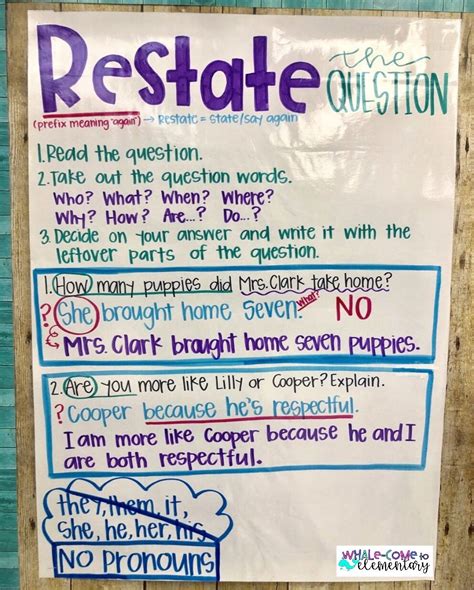 Restate the QUESTION
(prefix meaning "again") → Restate = state/say again
1. Read the question.
2. Take out the question words.
Who? What? When? Where?
Why? How? Are...? Do...?
3. Decide on your answer and write it with the
leftover parts of the question.
1. How many puppies did Mrs. Clark take home?
? She brought home seven. what? NO
Mrs. Clark brought home seven puppies.
2. Are you more like Lilly or Cooper? Explain.
? Cooper because he's respectful.
I am more like Cooper because he and I
are both respectful.
they, them, it,
she, he, her, his
NO PRONOUNS
WHALE-COME to
elementary